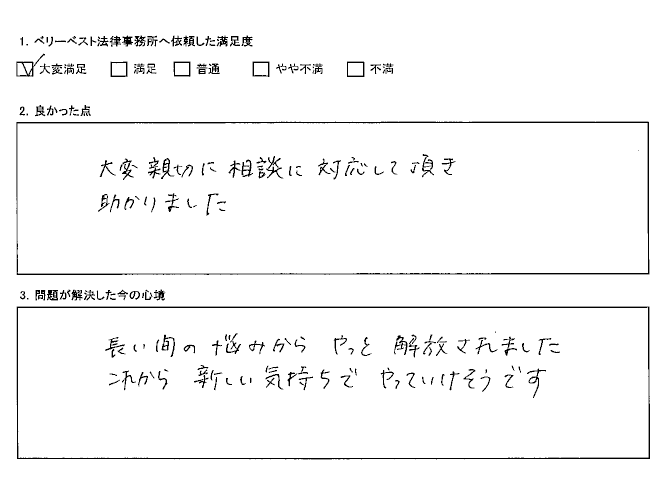 1. ベリーベスト法律事務所へ依頼した満足度
大変満足 満足 普通 やや不満 不満
2. 良かった点
大変親切に相談に対応して頂き
助かりました
3. 問題が解決した今の心境
長い間の悩みから やっと 解放されました
これから 新しい気持ちで やっていけそうです